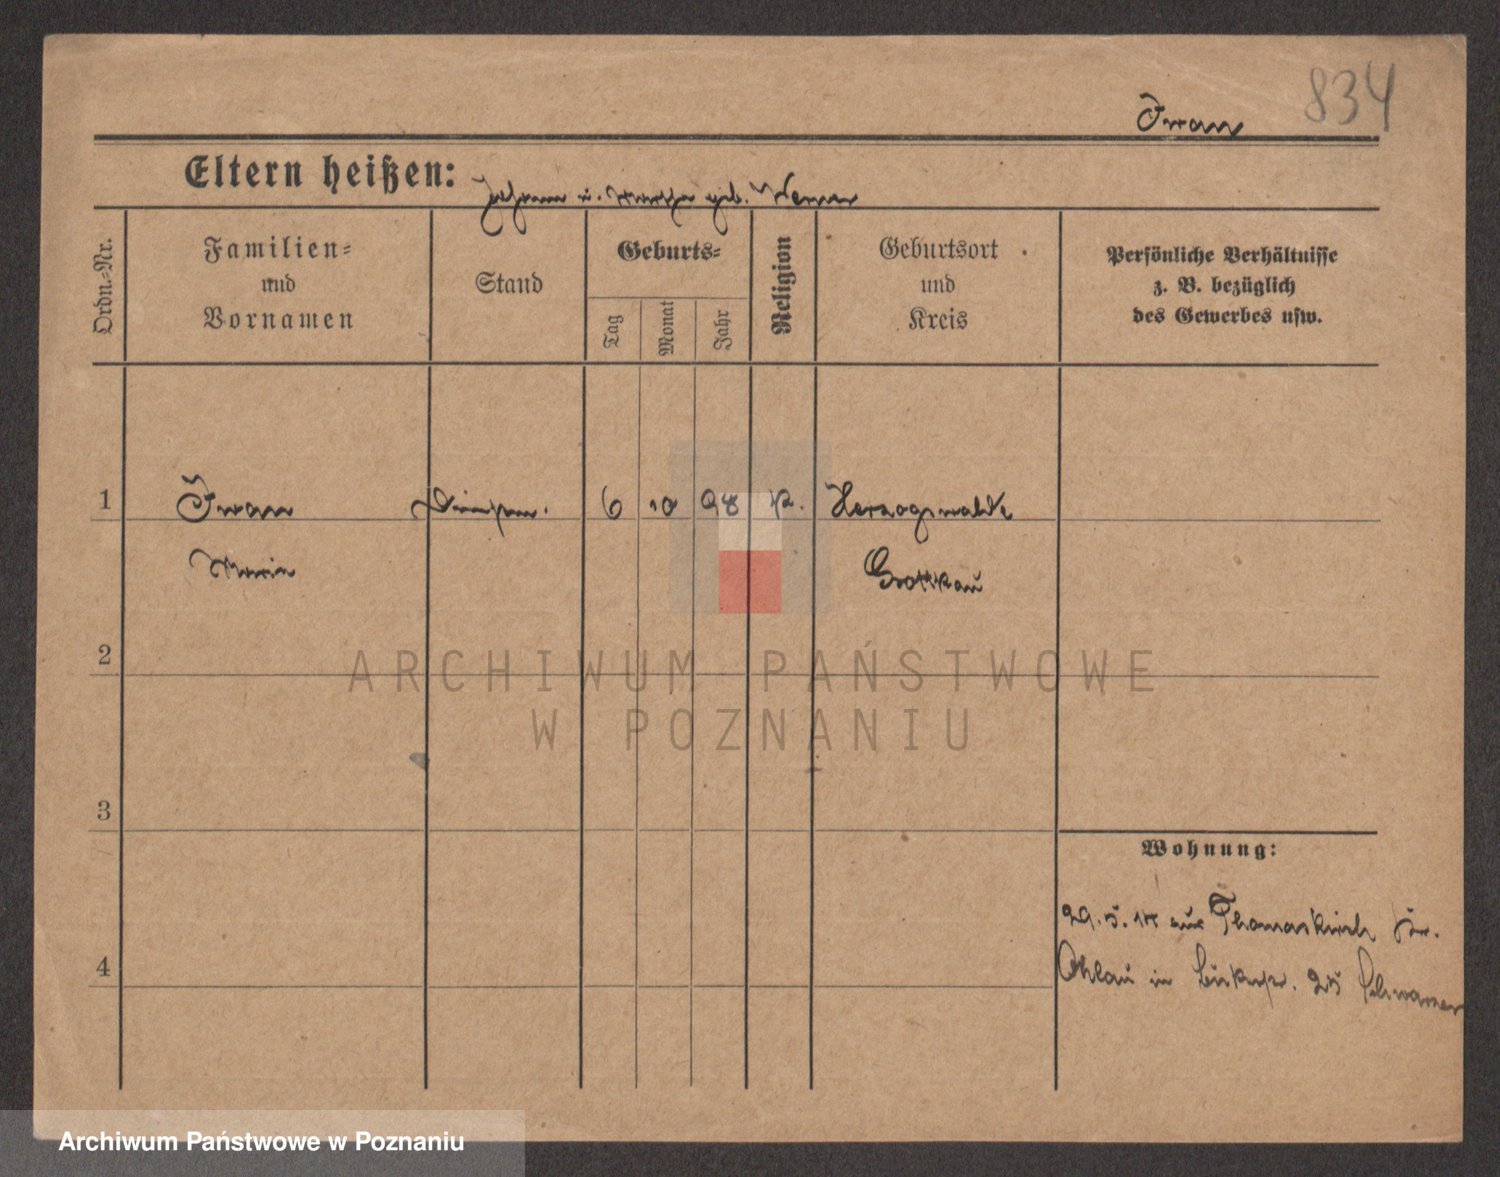 834
Iwan
Eltern heißen: Johann u. Martha geb. Werner
Ordn.-Nr.
Familien-
und
Vornamen
Stand
Geburts-
Tag
Monat
Jahr
Religion
Geburtsort
und
Kreis
Persönliche Verhältnisse
z. B. bezüglich
des Gewerbes usw.
1 Iwan 6 10 98 K. Herzogswalde
Maria Grottkau
2
ARCHIWUM PAŃSTWOWE
W POZNANIU
3
Wohnung:
29.5.18 aus Thomaskirch Kr.
4
Ohlau in 25 Schwarzer
Archiwum Państwowe w Poznaniu